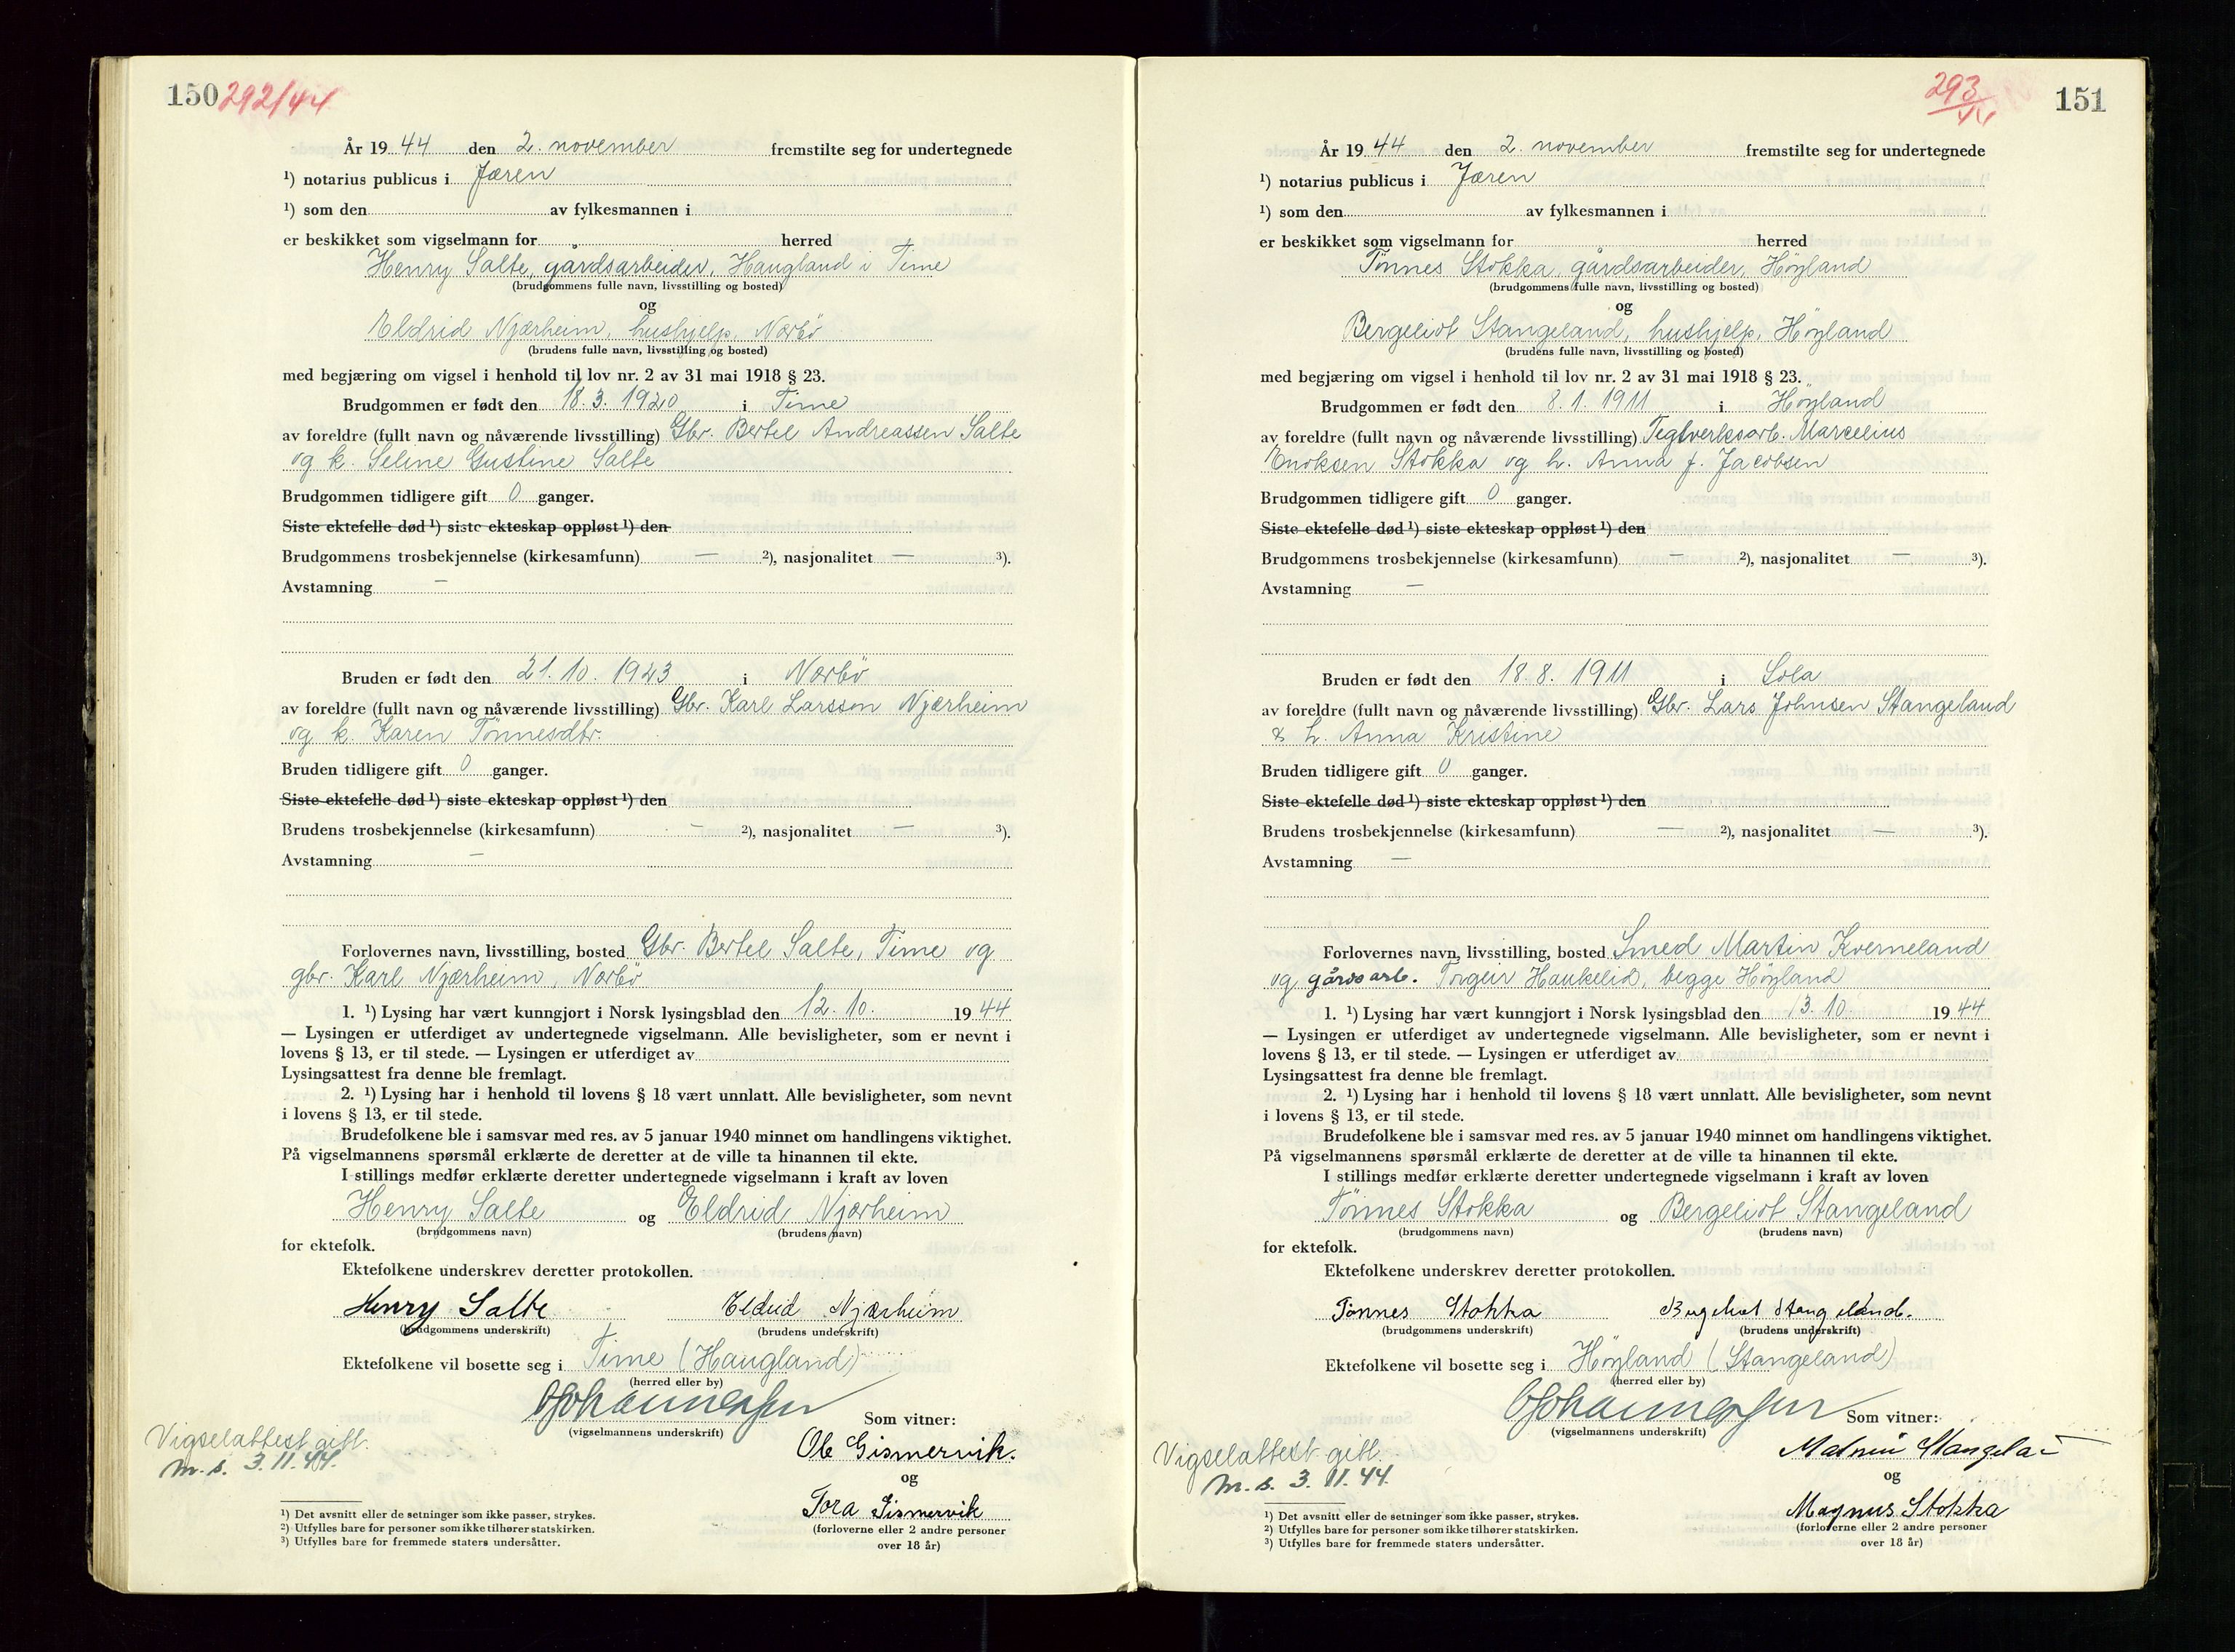 150 292/44
År 19 44 den 2. november fremstilte seg for undertegnede
¹) notarius publicus i Jæren
¹) som den av fylkesmannen i
er beskikket som vigselmann for herred
Henry Salte, gårdsarbeider, Haugland i Time
(brudgommens fulle navn, livsstilling og bosted)
og
Eldrid Njærheim, hushjelp, Nærbö
(brudens fulle navn, livsstilling og bosted)
med begjæring om vigsel i henhold til lov nr. 2 av 31 mai 1918 § 23.
Brudgommen er født den 18. 3. 1920 i Time
av foreldre (fullt navn og nåværende livsstilling) Gbr. Bertel Andreassen Salte
og k. Seline Gustine Salte
Brudgommen tidligere gift 0 ganger.
Siste ektefelle død ¹) siste ekteskap oppløst ¹) den
Brudgommens trosbekjennelse (kirkesamfunn) — ²), nasjonalitet — ³).
Avstamning —
Bruden er født den 21. 10. 1923 i Nærbö
av foreldre (fullt navn og nåværende livsstilling) Gbr. Karl Larsson Njærheim
og k. Karen Tönnesdtr.
Bruden tidligere gift 0 ganger.
Siste ektefelle død ¹) siste ekteskap oppløst ¹) den
Brudens trosbekjennelse (kirkesamfunn) — ²), nasjonalitet — ³).
Avstamning —
Forlovernes navn, livsstilling, bosted Gbr. Bertel Salte, Time og
gbr. Karl Njærheim, Nærbö
1. ¹) Lysing har vært kunngjort i Norsk lysingsblad den 12. 10. 19 44
— Lysingen er utferdiget av undertegnede vigselmann. Alle bevisligheter, som er nevnt i
lovens § 13, er til stede. — Lysingen er utferdiget av
Lysingsattest fra denne ble fremlagt.
2. ¹) Lysing har i henhold til lovens § 18 vært unnlatt. Alle bevisligheter, som nevnt
i lovens § 13, er til stede.
Brudefolkene ble i samsvar med res. av 5 januar 1940 minnet om handlingens viktighet.
På vigselmannens spørsmål erklærte de deretter at de ville ta hinannen til ekte.
I stillings medfør erklærte deretter undertegnede vigselmann i kraft av loven
Henry Salte og Eldrid Njærheim
(brudgommens navn) (brudens navn)
for ektefolk.
Ektefolkene underskrev deretter protokollen.
Henry Salte Eldrid Njærheim
(brudgommens underskrift) (brudens underskrift)
Ektefolkene vil bosette seg i Time (Haugland)
(herred eller by)
Som vitner:
(vigselmannens underskrift)
Vigselattest gitt.
m. s. 3. 11. 44.
Ole Gismervik.
og
Tora Gismervik
(forloverne eller 2 andre personer
over 18 år)
¹) Det avsnitt eller de setninger som ikke passer, strykes.
²) Utfylles bare for personer som ikke tilhører statskirken.
³) Utfylles bare for fremmede staters undersåtter.
293/44 151
År 19 44 den 2. november fremstilte seg for undertegnede
¹) notarius publicus i Jæren
¹) som den av fylkesmannen i
er beskikket som vigselmann for herred
Tönnes Stokka, gårdsarbeider, Höyland
(brudgommens fulle navn, livsstilling og bosted)
og
Bergeliot Stangeland, hushjelp, Höyland
(brudens fulle navn, livsstilling og bosted)
med begjæring om vigsel i henhold til lov nr. 2 av 31 mai 1918 § 23.
Brudgommen er født den 8. 1. 1911 i Höyland
av foreldre (fullt navn og nåværende livsstilling) Teglverksarb. Marselius
Enoksen Stokka og h. Anna f. Jacobsen
Brudgommen tidligere gift 0 ganger.
Siste ektefelle død ¹) siste ekteskap oppløst ¹) den
Brudgommens trosbekjennelse (kirkesamfunn) — ²), nasjonalitet — ³).
Avstamning —
Bruden er født den 18. 8. 1911 i Sola
av foreldre (fullt navn og nåværende livsstilling) Gbr. Lars Johnsen Stangeland
& h. Anna Kristine
Bruden tidligere gift 0 ganger.
Siste ektefelle død ¹) siste ekteskap oppløst ¹) den
Brudens trosbekjennelse (kirkesamfunn) — ²), nasjonalitet — ³).
Avstamning —
Forlovernes navn, livsstilling, bosted Smed Martin Kverneland
og gårdsarb. Torgeir Haukelid, begge Höyland
1. ¹) Lysing har vært kunngjort i Norsk lysingsblad den 13. 10. 19 44
— Lysingen er utferdiget av undertegnede vigselmann. Alle bevisligheter, som er nevnt i
lovens § 13, er til stede. — Lysingen er utferdiget av
Lysingsattest fra denne ble fremlagt.
2. ¹) Lysing har i henhold til lovens § 18 vært unnlatt. Alle bevisligheter, som nevnt
i lovens § 13, er til stede.
Brudefolkene ble i samsvar med res. av 5 januar 1940 minnet om handlingens viktighet.
På vigselmannens spørsmål erklærte de deretter at de ville ta hinannen til ekte.
I stillings medfør erklærte deretter undertegnede vigselmann i kraft av loven
Tönnes Stokka og Bergeliot Stangeland
(brudgommens navn) (brudens navn)
for ektefolk.
Ektefolkene underskrev deretter protokollen.
Tönnes Stokka Bergeliot Stangeland.
(brudgommens underskrift) (brudens underskrift)
Ektefolkene vil bosette seg i Höyland (Stangeland)
(herred eller by)
Som vitner:
(vigselmannens underskrift)
Vigselattest gitt.
m. s. 3. 11. 44.
Stangela
og
Magnus Stokka
(forloverne eller 2 andre personer
over 18 år)
¹) Det avsnitt eller de setninger som ikke passer, strykes.
²) Utfylles bare for personer som ikke tilhører statskirken.
³) Utfylles bare for fremmede staters undersåtter.